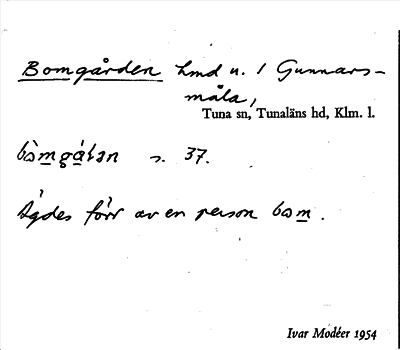 Bomgården hmd u. 1 Gunnars-
måla,
Tuna sn, Tunaläns hd, Klm. l.
bòmgá̊tən s. 37.
Ägdes förr av en person bom.
Ivar Modéer 1954